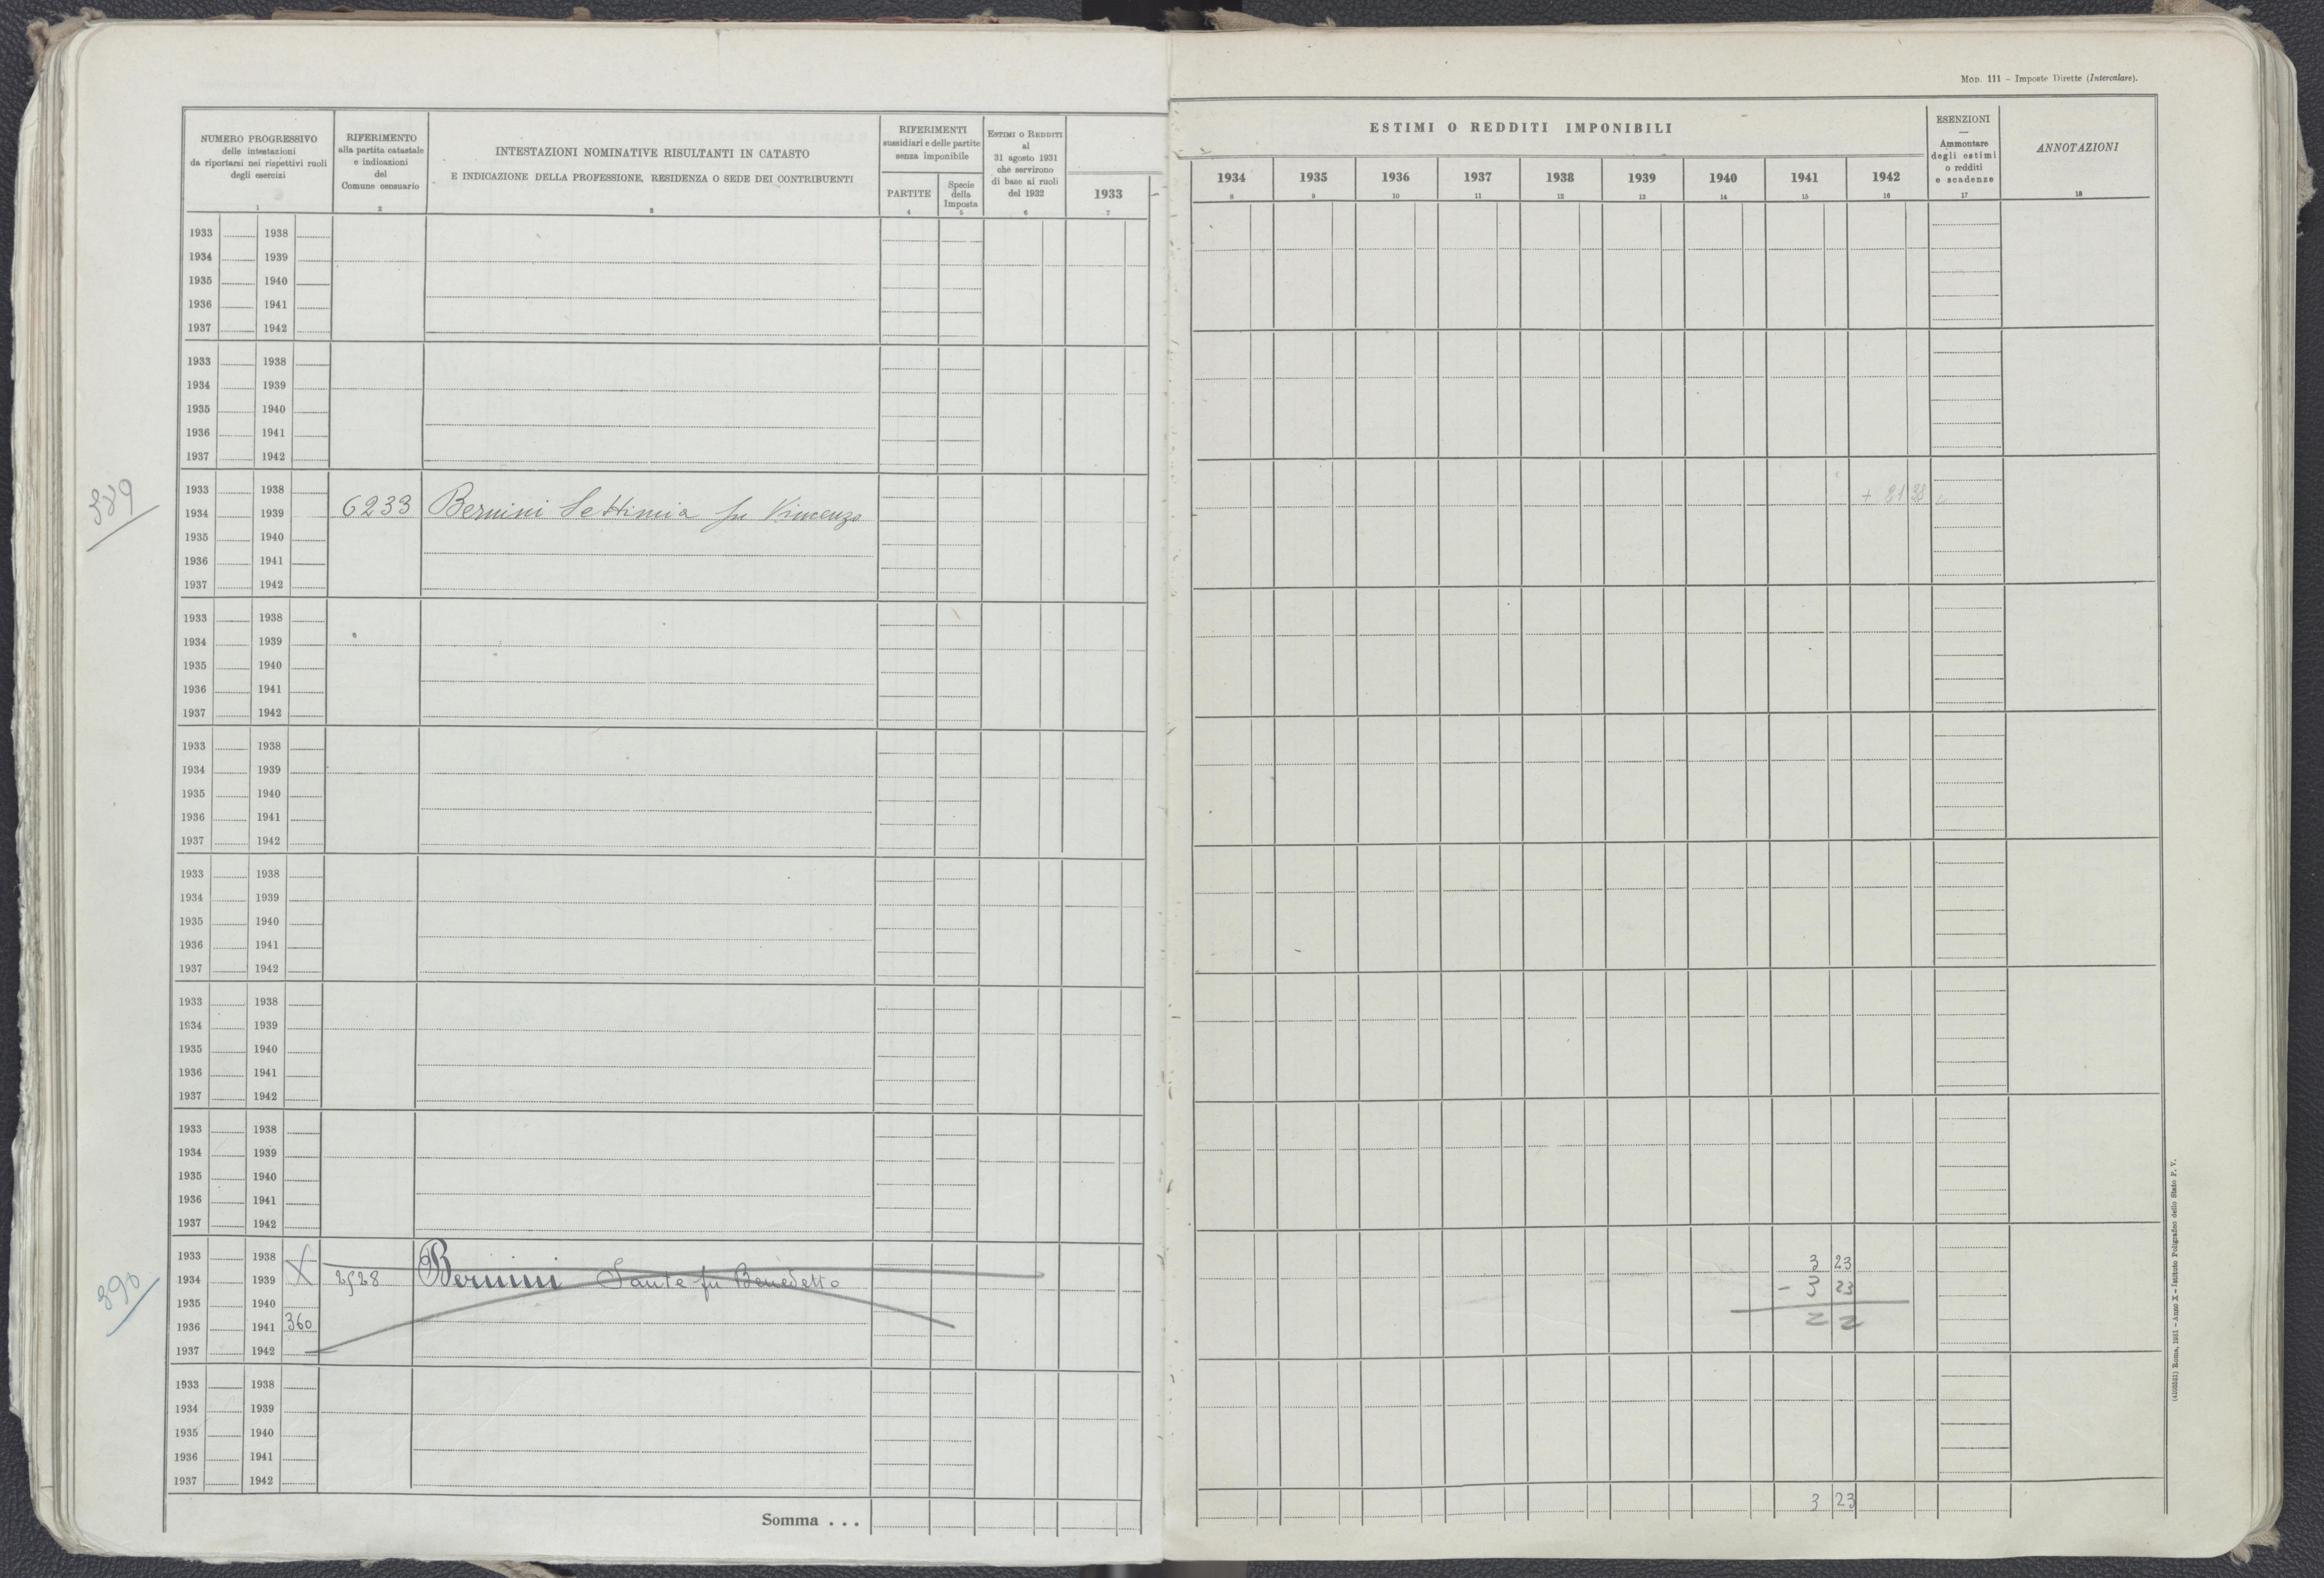 Mod. 111 – Imposte Dirette (Intercalare).
NUMERO PROGRESSIVO
delle intestazioni
da riportarsi nei rispettivi ruoli
degli esercizi
1
RIFERIMENTO
alla partita catastale
e indicazioni
del
Comune censuario
2
INTESTAZIONI NOMINATIVE RISULTANTI IN CATASTO
E INDICAZIONE DELLA PROFESSIONE, RESIDENZA O SEDE DEI CONTRIBUENTI
3
RIFERIMENTI
sussidiari e delle partite
senza imponibile
PARTITE
4
Specie
della
Imposta
5
ESTIMI O REDDITI
al
31 agosto 1931
che servirono
di base ai ruoli
del 1932
6
1933
7
ESTIMI O REDDITI IMPONIBILI
1934 1935 1936 1937 1938 1939 1940 1941 1942
8 9 10 11 12 13 14 15 16
ESENZIONI
—
Ammontare
degli estimi
o redditi
e scadenze
17
ANNOTAZIONI
18
1933 1938
1934 1939
1935 1940
1936 1941
1937 1942
1933 1938
1934 1939
1935 1940
1936 1941
1937 1942
389
1933 1938
1934 1939 6233 Bernini Settimia fu Vincenzo
1935 1940
1936 1941
1937 1942
1933 1938
1934 1939
1935 1940
1936 1941
1937 1942
1933 1938
1934 1939
1935 1940
1936 1941
1937 1942
1933 1938
1934 1939
1935 1940
1936 1941
1937 1942
1933 1938
1934 1939
1935 1940
1936 1941
1937 1942
1933 1938
1934 1939
1935 1940
1936 1941
1937 1942
390
1933 1938 3 23
1934 1939 X 2528 Bernini Sante fu Benedetto - 3 23
1935 1940
1936 1941 360
1937 1942
1933 1938
1934 1939
1935 1940
1936 1941
1937 1942
Somma . . . 3 23
(4102521) Roma, 1931 – Anno X – Istituto Poligrafico dello Stato P. V.